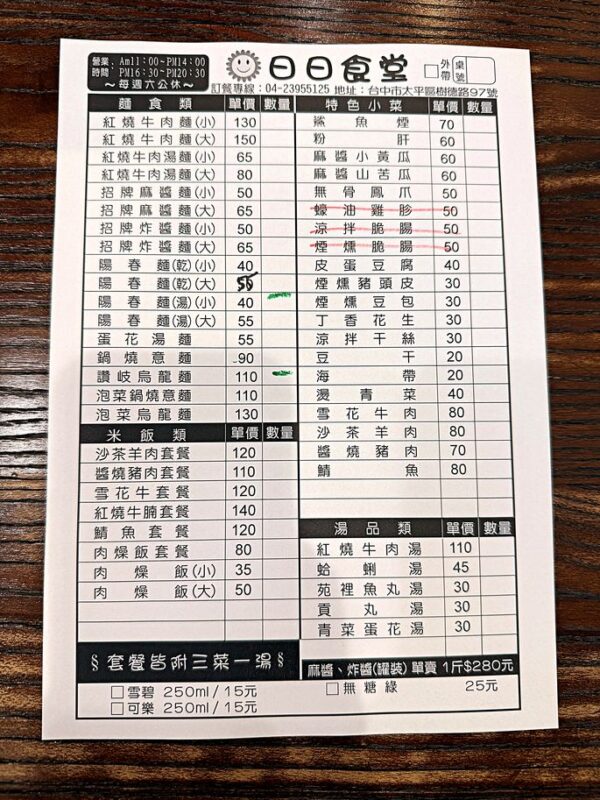 營業 Am11：00～PM14：00
時間 PM16：30～PM20：30
～每週六公休～
日日食堂
外帶
桌號
訂餐專線：04-23955125 地址：台中市太平區樹德路97號
麵食類 單價 數量
紅燒牛肉麵(小) 130
紅燒牛肉麵(大) 150
紅燒牛肉湯麵(小) 65
紅燒牛肉湯麵(大) 80
招牌麻醬麵(小) 50
招牌麻醬麵(大) 65
招牌炸醬麵(小) 50
招牌炸醬麵(大) 65
陽春麵(乾)(小) 40
陽春麵(乾)(大) 55
陽春麵(湯)(小) 40
陽春麵(湯)(大) 55
蛋花湯麵 55
鍋燒意麵 90
讚岐烏龍麵 110
泡菜鍋燒意麵 110
泡菜烏龍麵 130
米飯類 單價 數量
沙茶羊肉套餐 120
醬燒豬肉套餐 110
雪花牛套餐 120
紅燒牛腩套餐 140
鯖魚套餐 120
肉燥飯套餐 80
肉燥飯(小) 35
肉燥飯(大) 50
§套餐皆附三菜一湯§
特色小菜 單價 數量
鯊魚煙 70
粉肝 60
麻醬小黃瓜 60
麻醬山苦瓜 60
無骨鳳爪 50
蠔油雞胗 50
涼拌脆腸 50
煙燻脆腸 50
皮蛋豆腐 40
煙燻豬頭皮 30
煙燻豆包 30
丁香花生 30
涼拌干絲 30
豆干 20
海帶 20
燙青菜 40
雪花牛肉 80
沙茶羊肉 80
醬燒豬肉 70
鯖魚 80
湯品類 單價 數量
紅燒牛肉湯 110
蛤蜊湯 45
苑裡魚丸湯 30
貢丸湯 30
青菜蛋花湯 30
麻醬、炸醬(罐裝) 單賣 1斤$280元
雪碧 250ml / 15元
可樂 250ml / 15元
無糖綠 25元